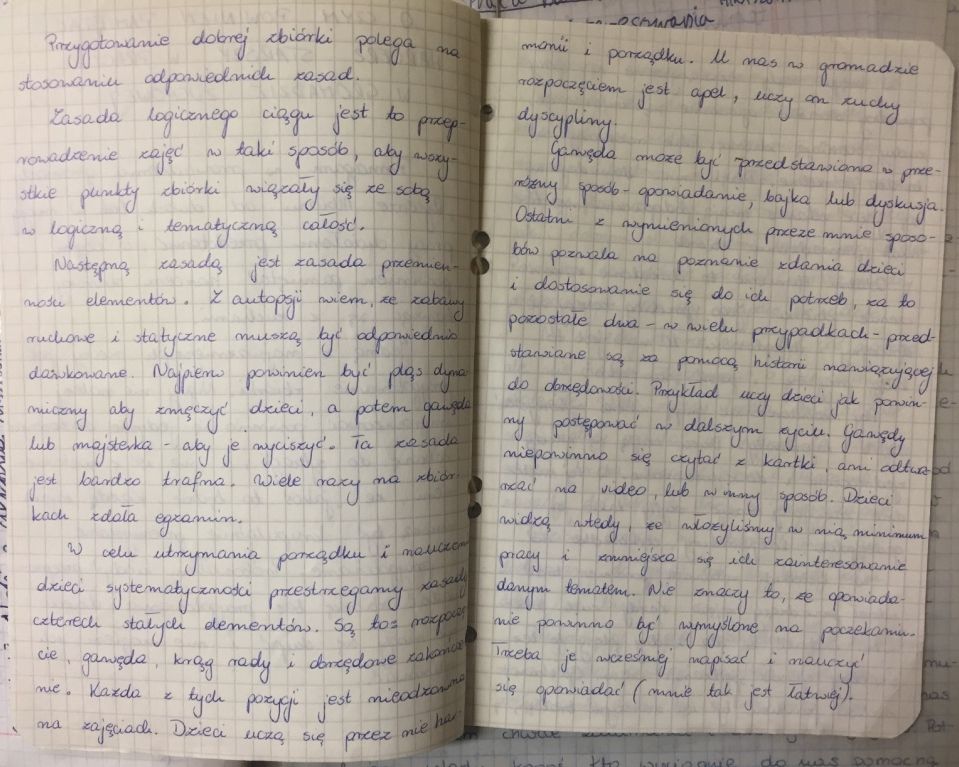 Przygotowanie dobrej zbiórki polega na
stosowaniu odpowiednich zasad.
Zasada logicznego ciągu jest to przep-
rowadzenie zajęć w taki sposób, aby wszy-
stkie punkty zbiórki wiązały się ze sobą
w logiczną i tematyczną całość.
Następną zasadą jest zasada przemien-
ności elementów. Z autopsji wiem, że zabawy
ruchowe i statyczne muszą być odpowiednio
dawkowane. Najpierw powinien być pląs dyna
miczny aby zmęczyć dzieci, a potem gawęda
lub majsterka - aby je wyciszyć. Ta zasada
jest bardzo trafna. Wiele razy na zbiór-
kach zdała egzamin.
W celu utrzymania porządku i nauczen
dzieci systematyczności przestrzegamy zasady
czterech stałych elementów. Są to: rozpoczę
cie, gawęda, krąg rady i obrzędowe zakończe
nie. Każda z tych pozycji jest nieodzowna
na zajęciach. Dzieci uczą się przez nie har-
monii i porządku. U nas w gromadzie
rozpoczęciem jest apel, uczy on zuchy
dyscypliny.
Gawęda może być przedstawiona w prze-
różny sposób - opowiadanie, bajka lub dyskusja.
Ostatni z wymienionych przeze mnie sposo-
bów pozwala na poznanie zdania dzieci
i dostosowanie się do ich potrzeb, za to
pozostałe dwa - w wielu przypadkach - przed-
stawiane są za pomocą historii nawiązującej
do obrzędowości. Przykład uczy dzieci jak powin-
ny postępować w dalszym życiu. Gawędy
niepowinno się czytać z kartki, ani odtwa-
rzać na video, lub w inny sposób. Dzieci
widzą wtedy, że włożyliśmy w nią minimum
pracy i zmniejsza się ich zainteresowanie
danym tematem. Nie znaczy to, że opowiada-
nie powinno być wymyślone na poczekaniu.
Trzeba je wcześniej napisać i nauczyć
się opowiadać (mnie tak jest łatwiej).